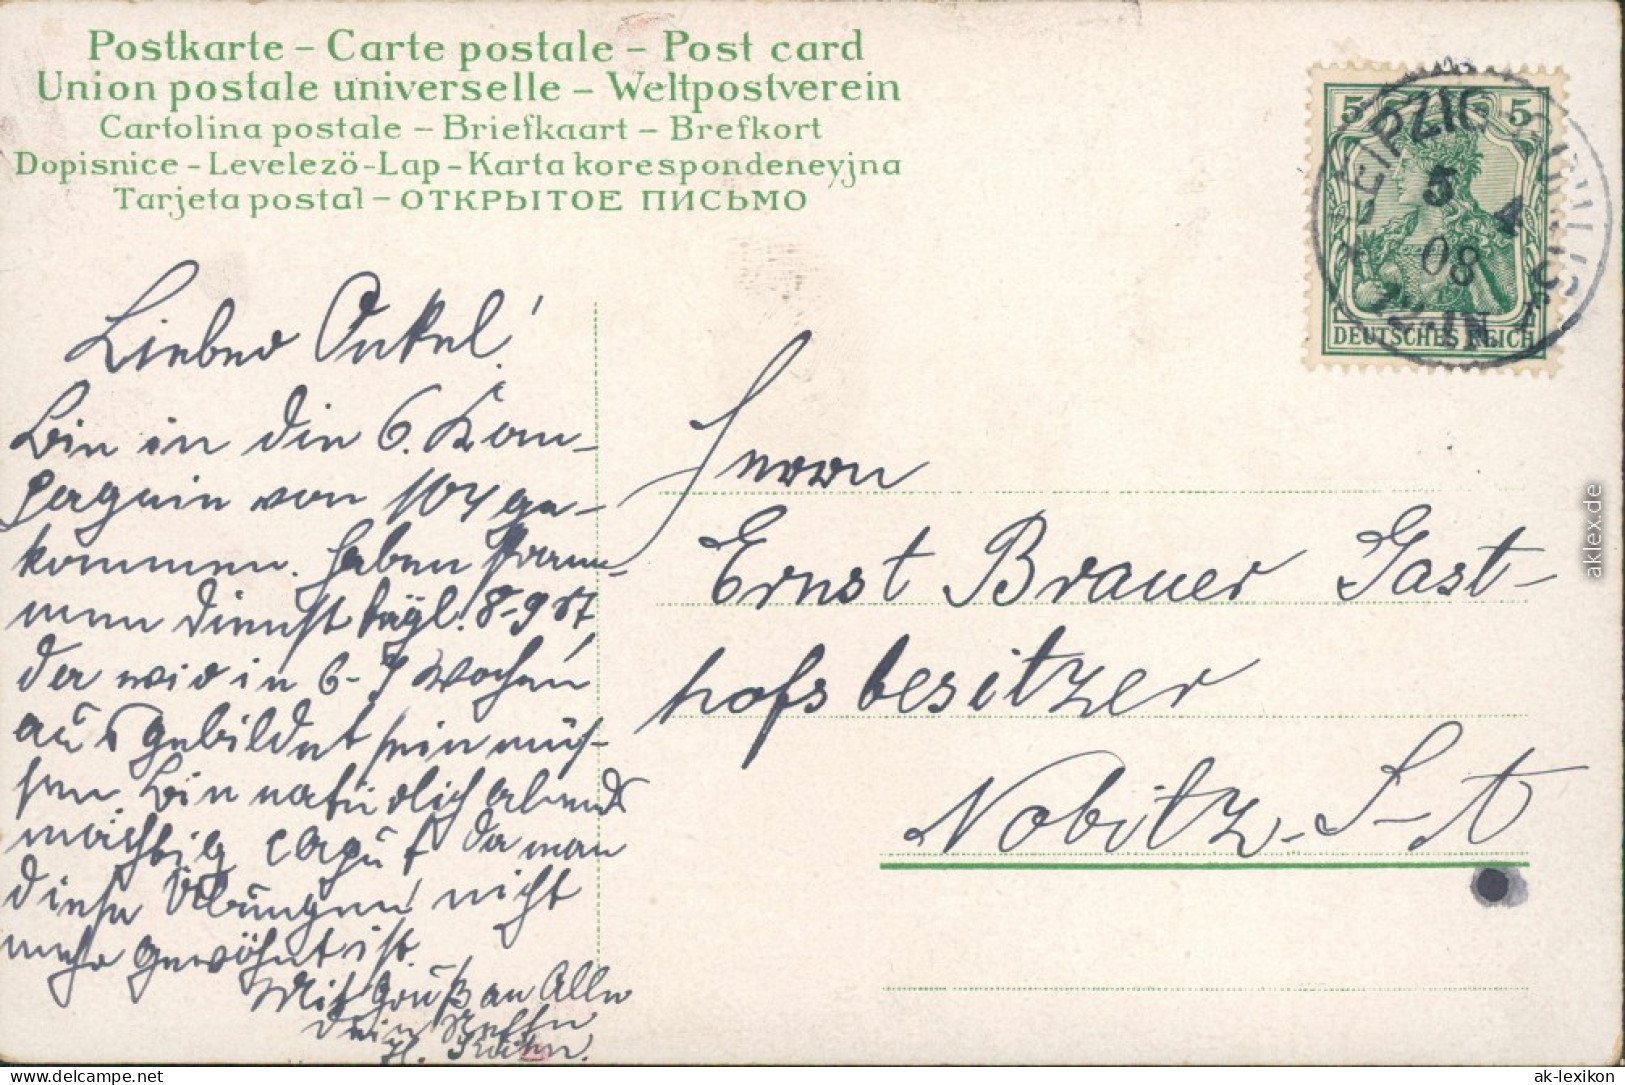 Postkarte – Carte postale – Post card
Union postale universelle – Weltpostverein
Cartolina postale – Briefkaart – Brefkort
Dopisnice – Levelező-Lap – Karta korespondeneyjna
Tarjeta postal – ОТКРЫТОЕ ПИСЬМО
5 5
LEIPZIG
5 4
08
12-1N
DEUTSCHES REICH
Lieber Onkel!
Bin in die 6. Kom-
pagnie von 104 ge-
kommen. Haben
dienst tägl. 8-9 St
da wir in 6-7 Wochen
ausgebildet sein müs-
sen. Bin natürlich abends
mächtig caput da man
diese Übungen nicht
mehr gewöhnt ist.
Mit Gruß an Alle
Dein Neffe
Herrn
Ernst Brauer Gast-
hofsbesitzer
Nobitz S-A
aklex.de
www.ak-ansichtskarten.de
ak-lexikon